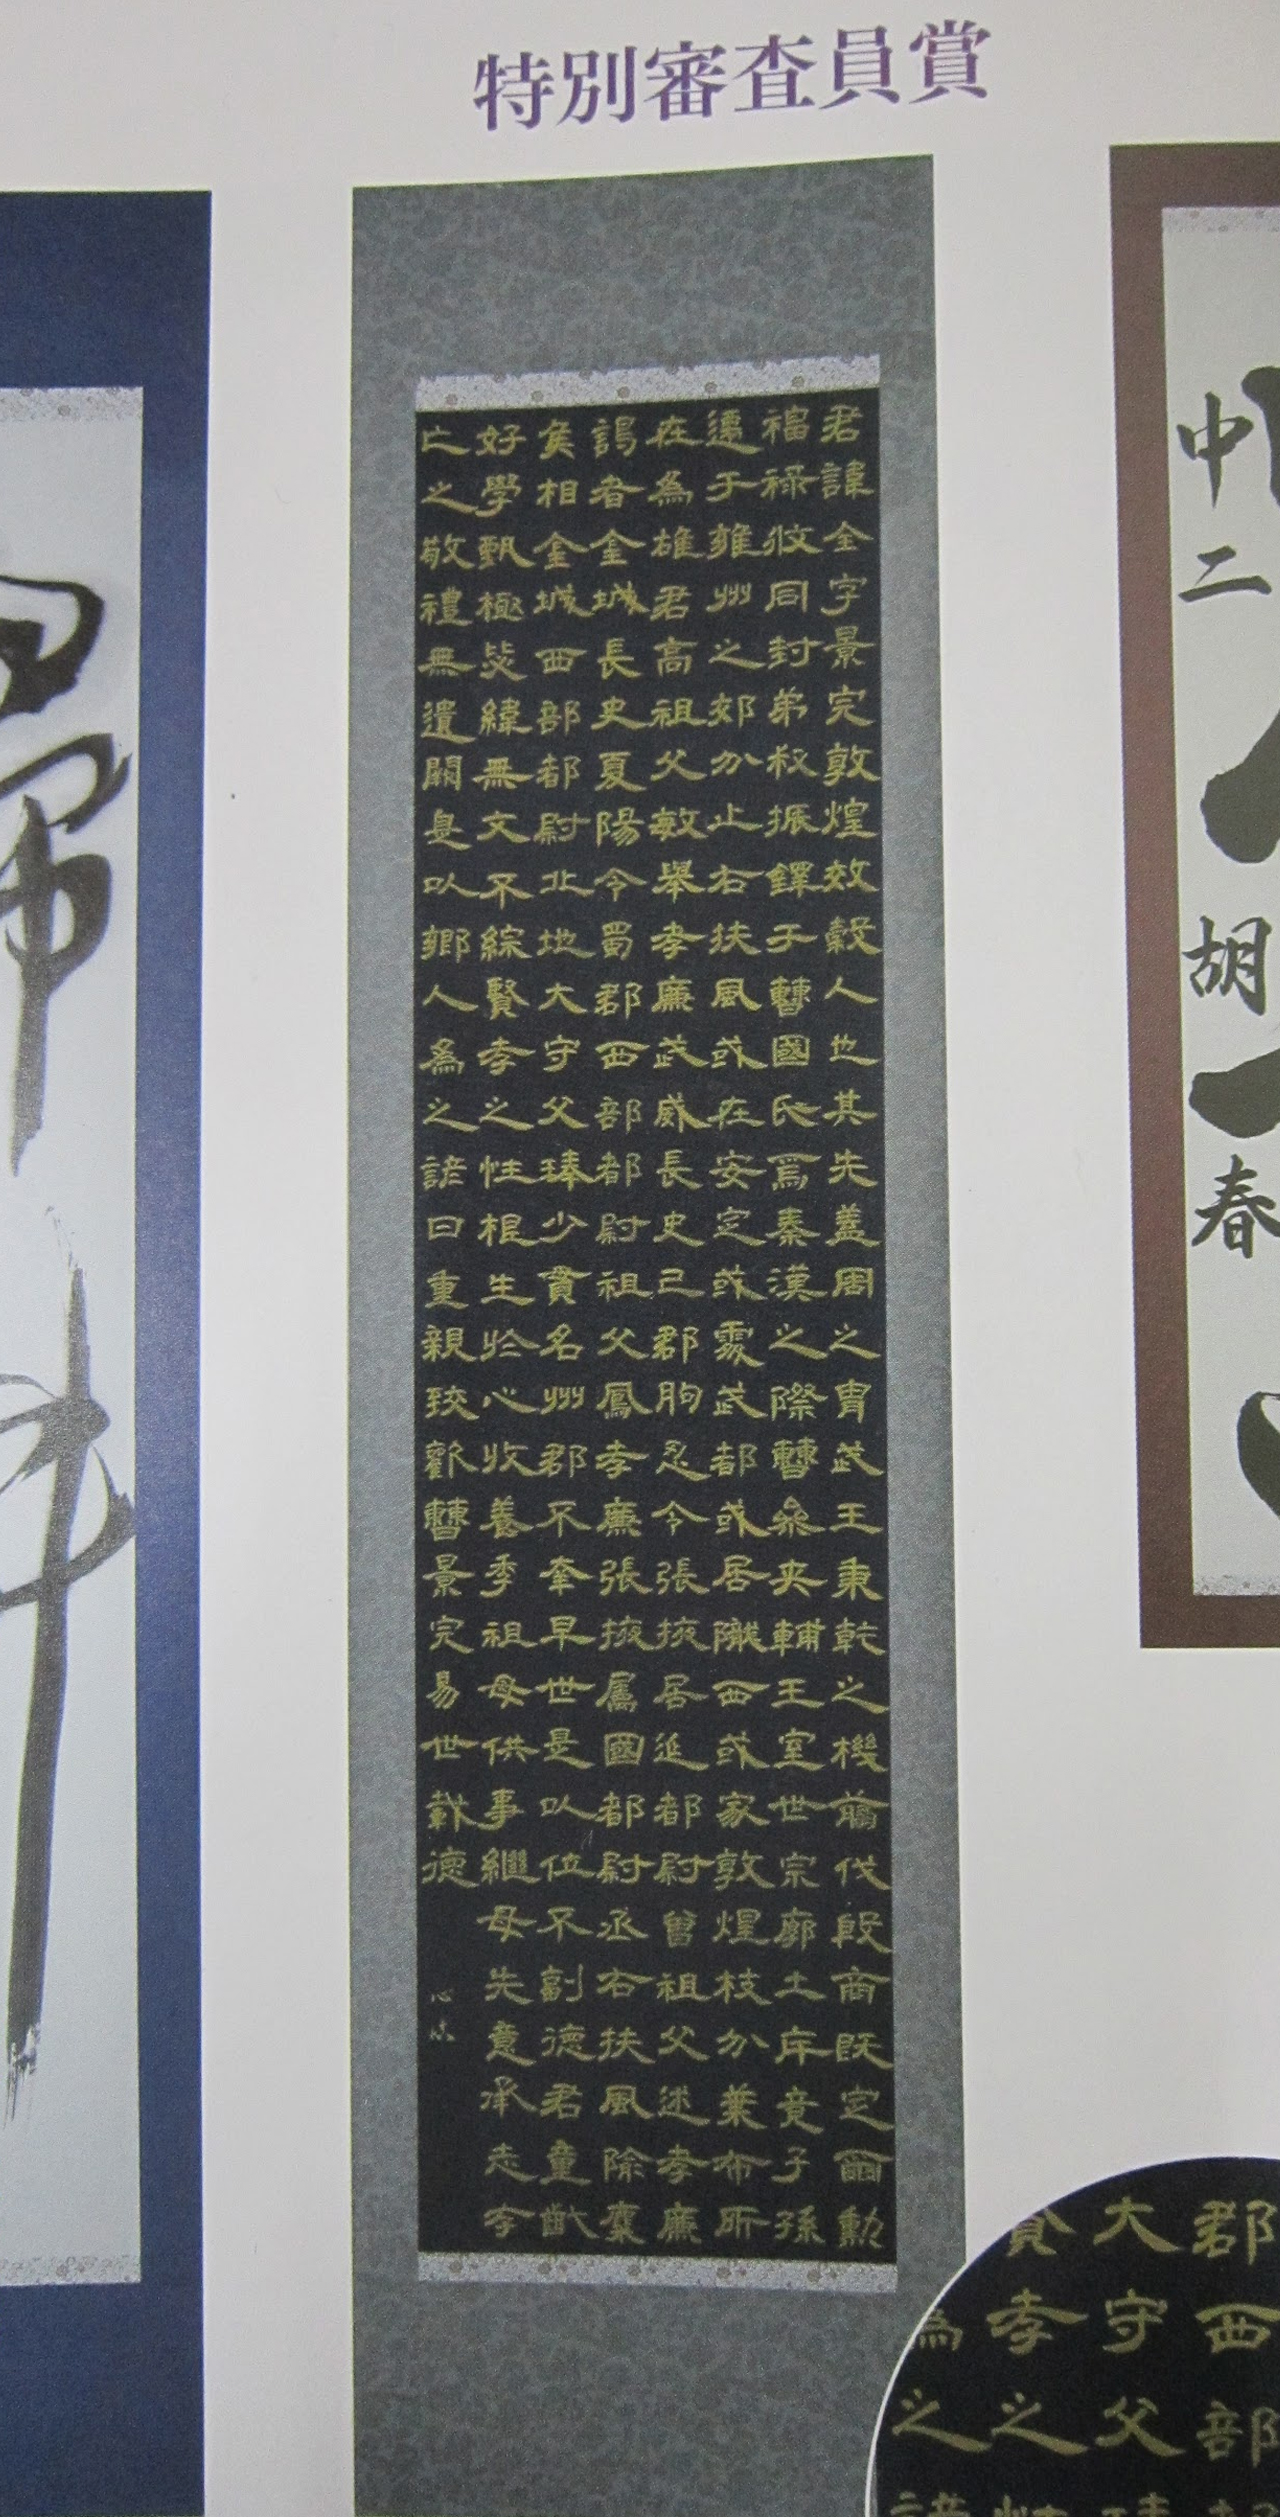 特別審査員賞
君諱全字景完敦煌效穀人也其先蓋周之胄武王秉乾之機翦伐殷商既定爾勳
福祿攸同封弟叔振鐸于曹國氏焉秦漢之際曹參夾輔王室世宗廓土斥竟子孫
遷于雍州之郊分止右扶風或在安定或處武都或居隴西或家敦煌枝分葉布所
在為雄君高祖父敏舉孝廉武威長史巴郡朐忍令張掖居延都尉曾祖父述孝廉
謁者金城長史夏陽令蜀郡西部都尉祖父鳳孝廉張掖屬國都尉丞右扶風隃麋
矦相金城西部都尉北地大守父琫少貫名州郡不幸早世是以位不副德君童齔
好學甄極毖緯無文不綜賢孝之性根生於心收養季祖母供事繼母先意承志存
亡之敬禮無遺闕是以鄉人為之諺曰重親致歡曹景完易世載德
中二 胡 春
郡西部
大守父
賢孝之
為之